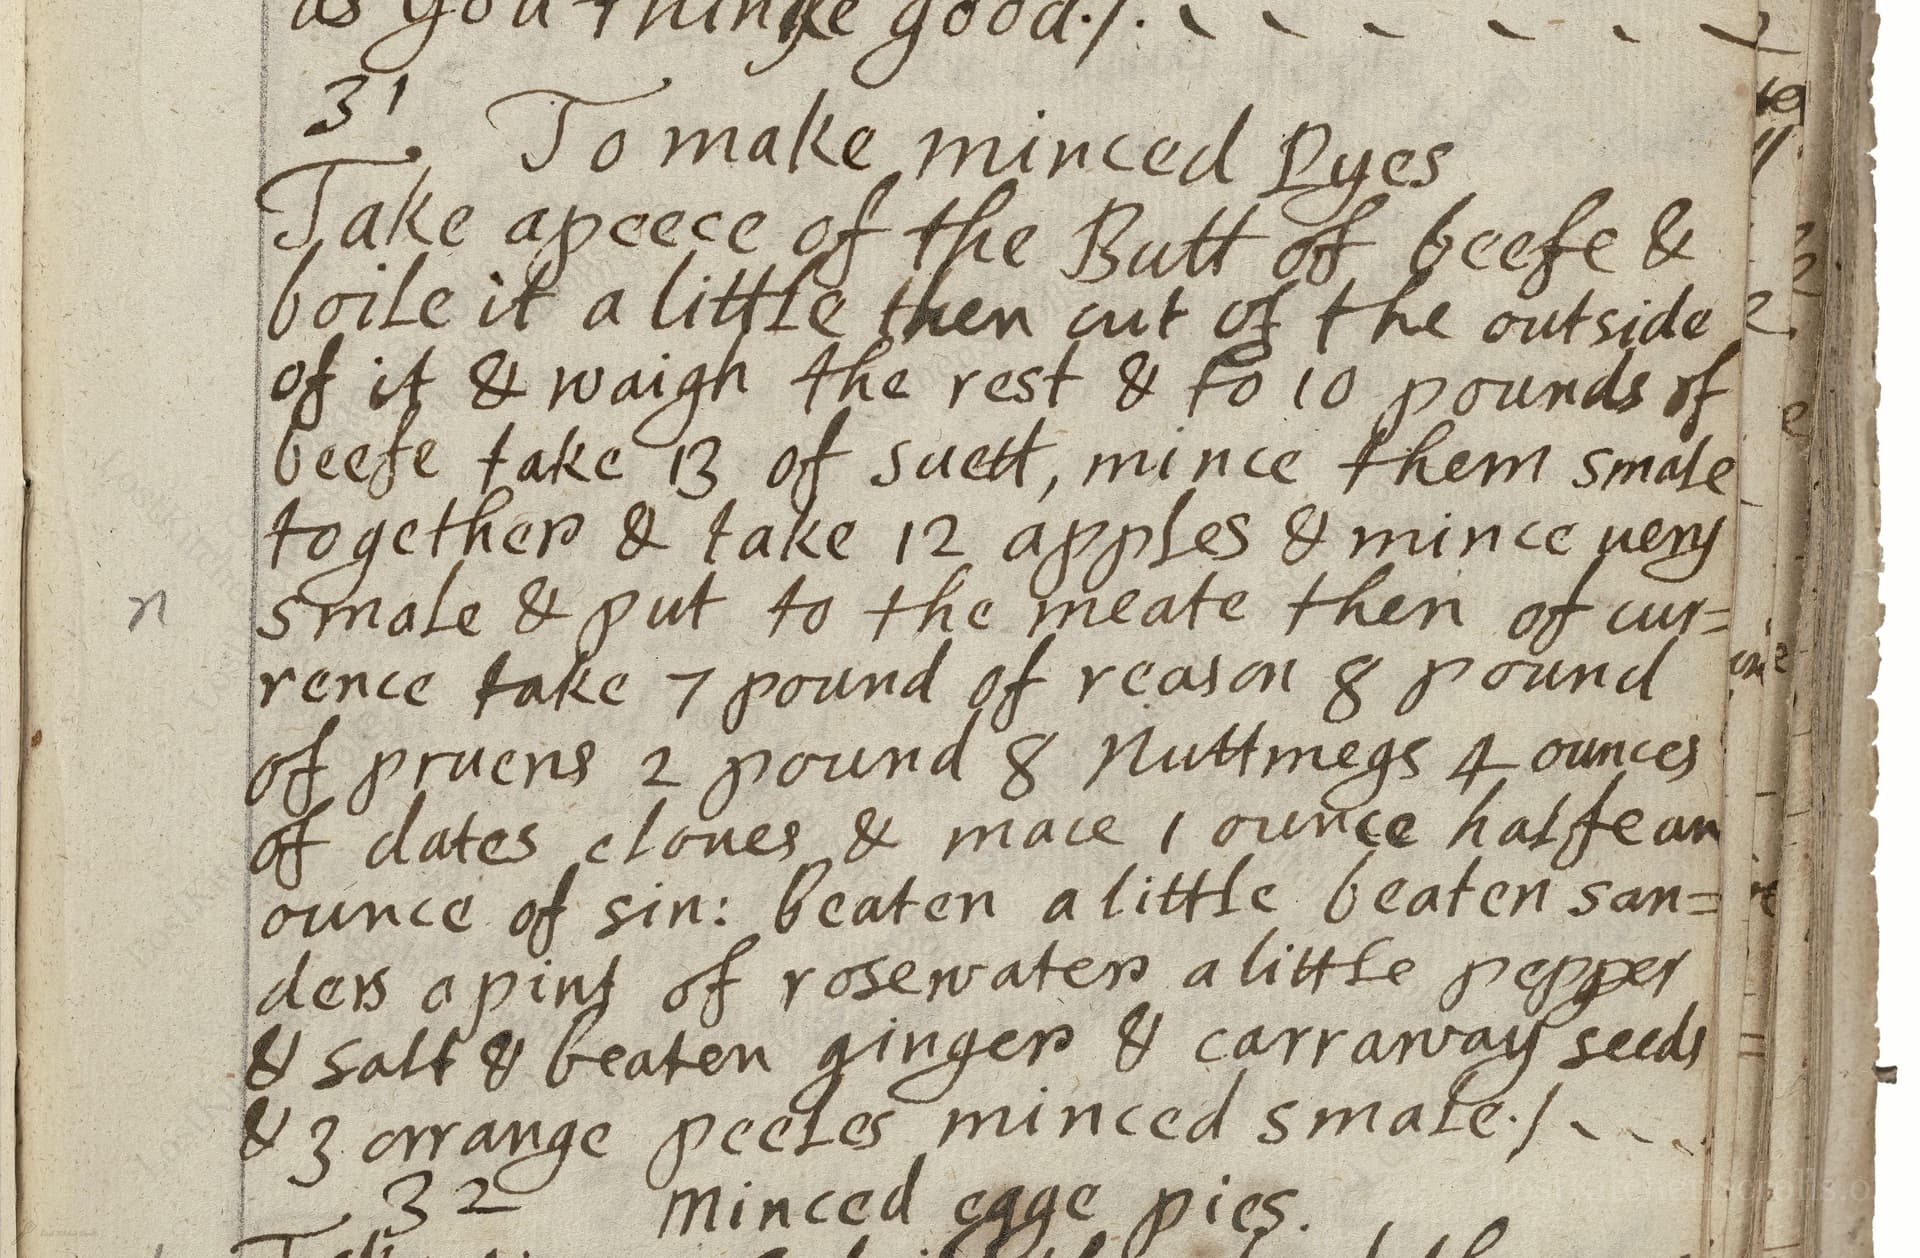 as you thinke good./.
31 To make minced Pyes
Take a peece of the Butt of beefe &
boile it a little then cut of the outside
of it & waigh the rest & to 10 pounds of
beefe take 13 of suett, mince them smale
together & take 12 apples & mince uery
smale & put to the meate then of cur=
rence take 7 pound of reason 8 pound
of pruens 2 pound 8 Nuttmegs 4 ounces
of dates cloues & mace 1 ounce halfe an
ounce of sin: beaten a little beaten san=
ders a pint of rosewater a little pepper
& salt & beaten ginger & carraway seeds
& 3 orrange peeles minced smale./
32 Minced egge pies.